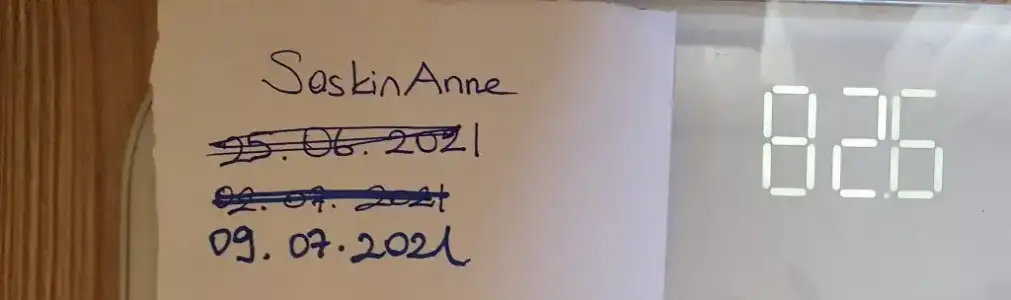 SaskinAnne
25.06.2021
02.07.2021
09.07.2021
82.6